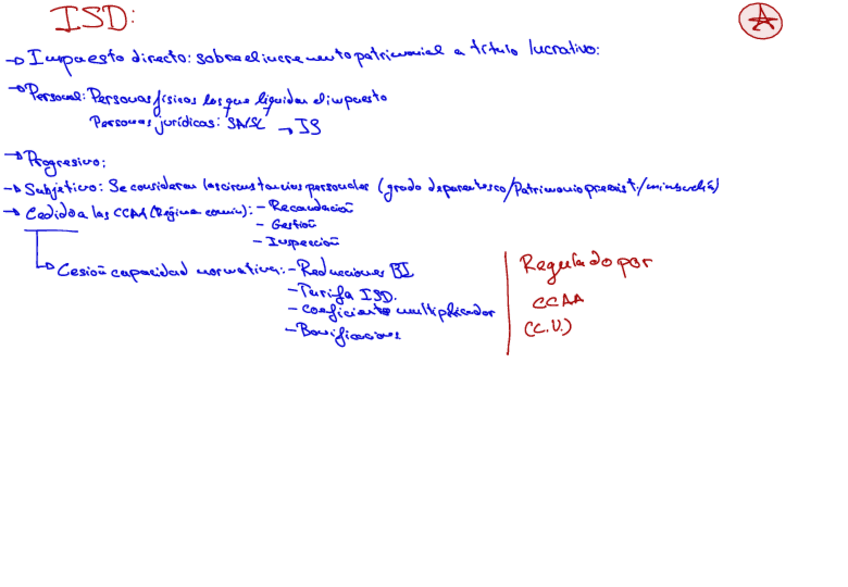 ISD:
A
→ Impuesto directo: sobre el incremento patrimonial a título lucrativo:
→ Personal: Personas físicas las que liquidan el impuesto
Personas jurídicas: SA/SL → IS
→ Progresivo:
→ Subjetivo: Se consideran las circunstancias personales (grado de parentesco/Patrimonio preexist./minusvalía)
→ Cedido a las CCAA (Régimen común): - Recaudación
- Gestión
- Inspección
→ Cesión capacidad normativa: - Reducciones BI
- Tarifa ISD.
- Coeficiente multiplicador
- Bonificaciones
Regulado por
CCAA
(C.V.)